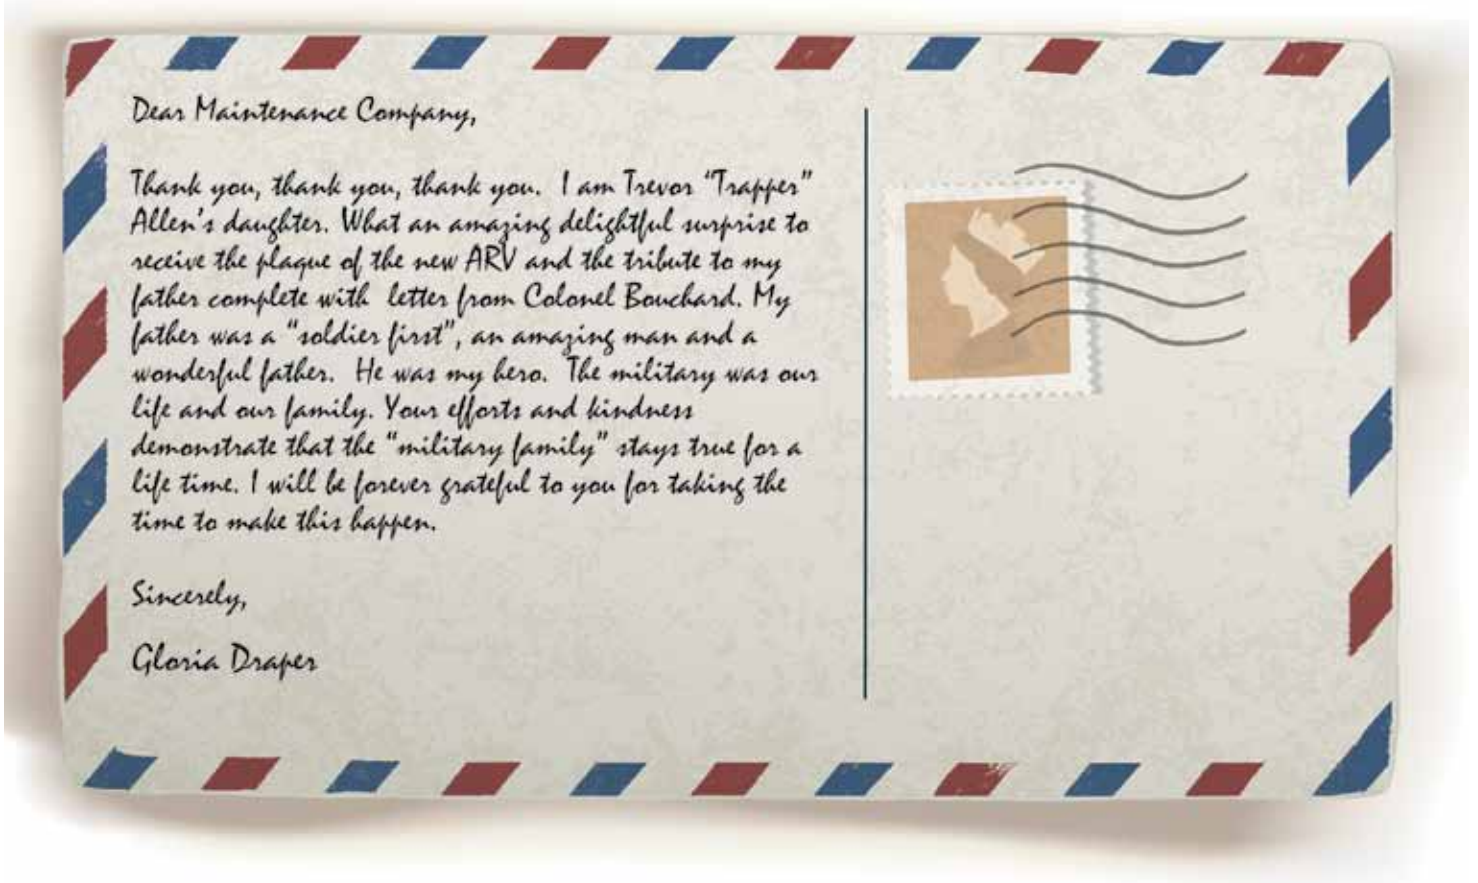 Dear Maintenance Company,
Thank you, thank you, thank you. I am Trevor "Trapper"
Allen's daughter. What an amazing delightful surprise to
receive the plaque of the new ARV and the tribute to my
father complete with letter from Colonel Bouchard. My
father was a "soldier first", an amazing man and a
wonderful father. He was my hero. The military was our
life and our family. Your efforts and kindness
demonstrate that the "military family" stays true for a
life time. I will be forever grateful to you for taking the
time to make this happen.
Sincerely,
Gloria Draper